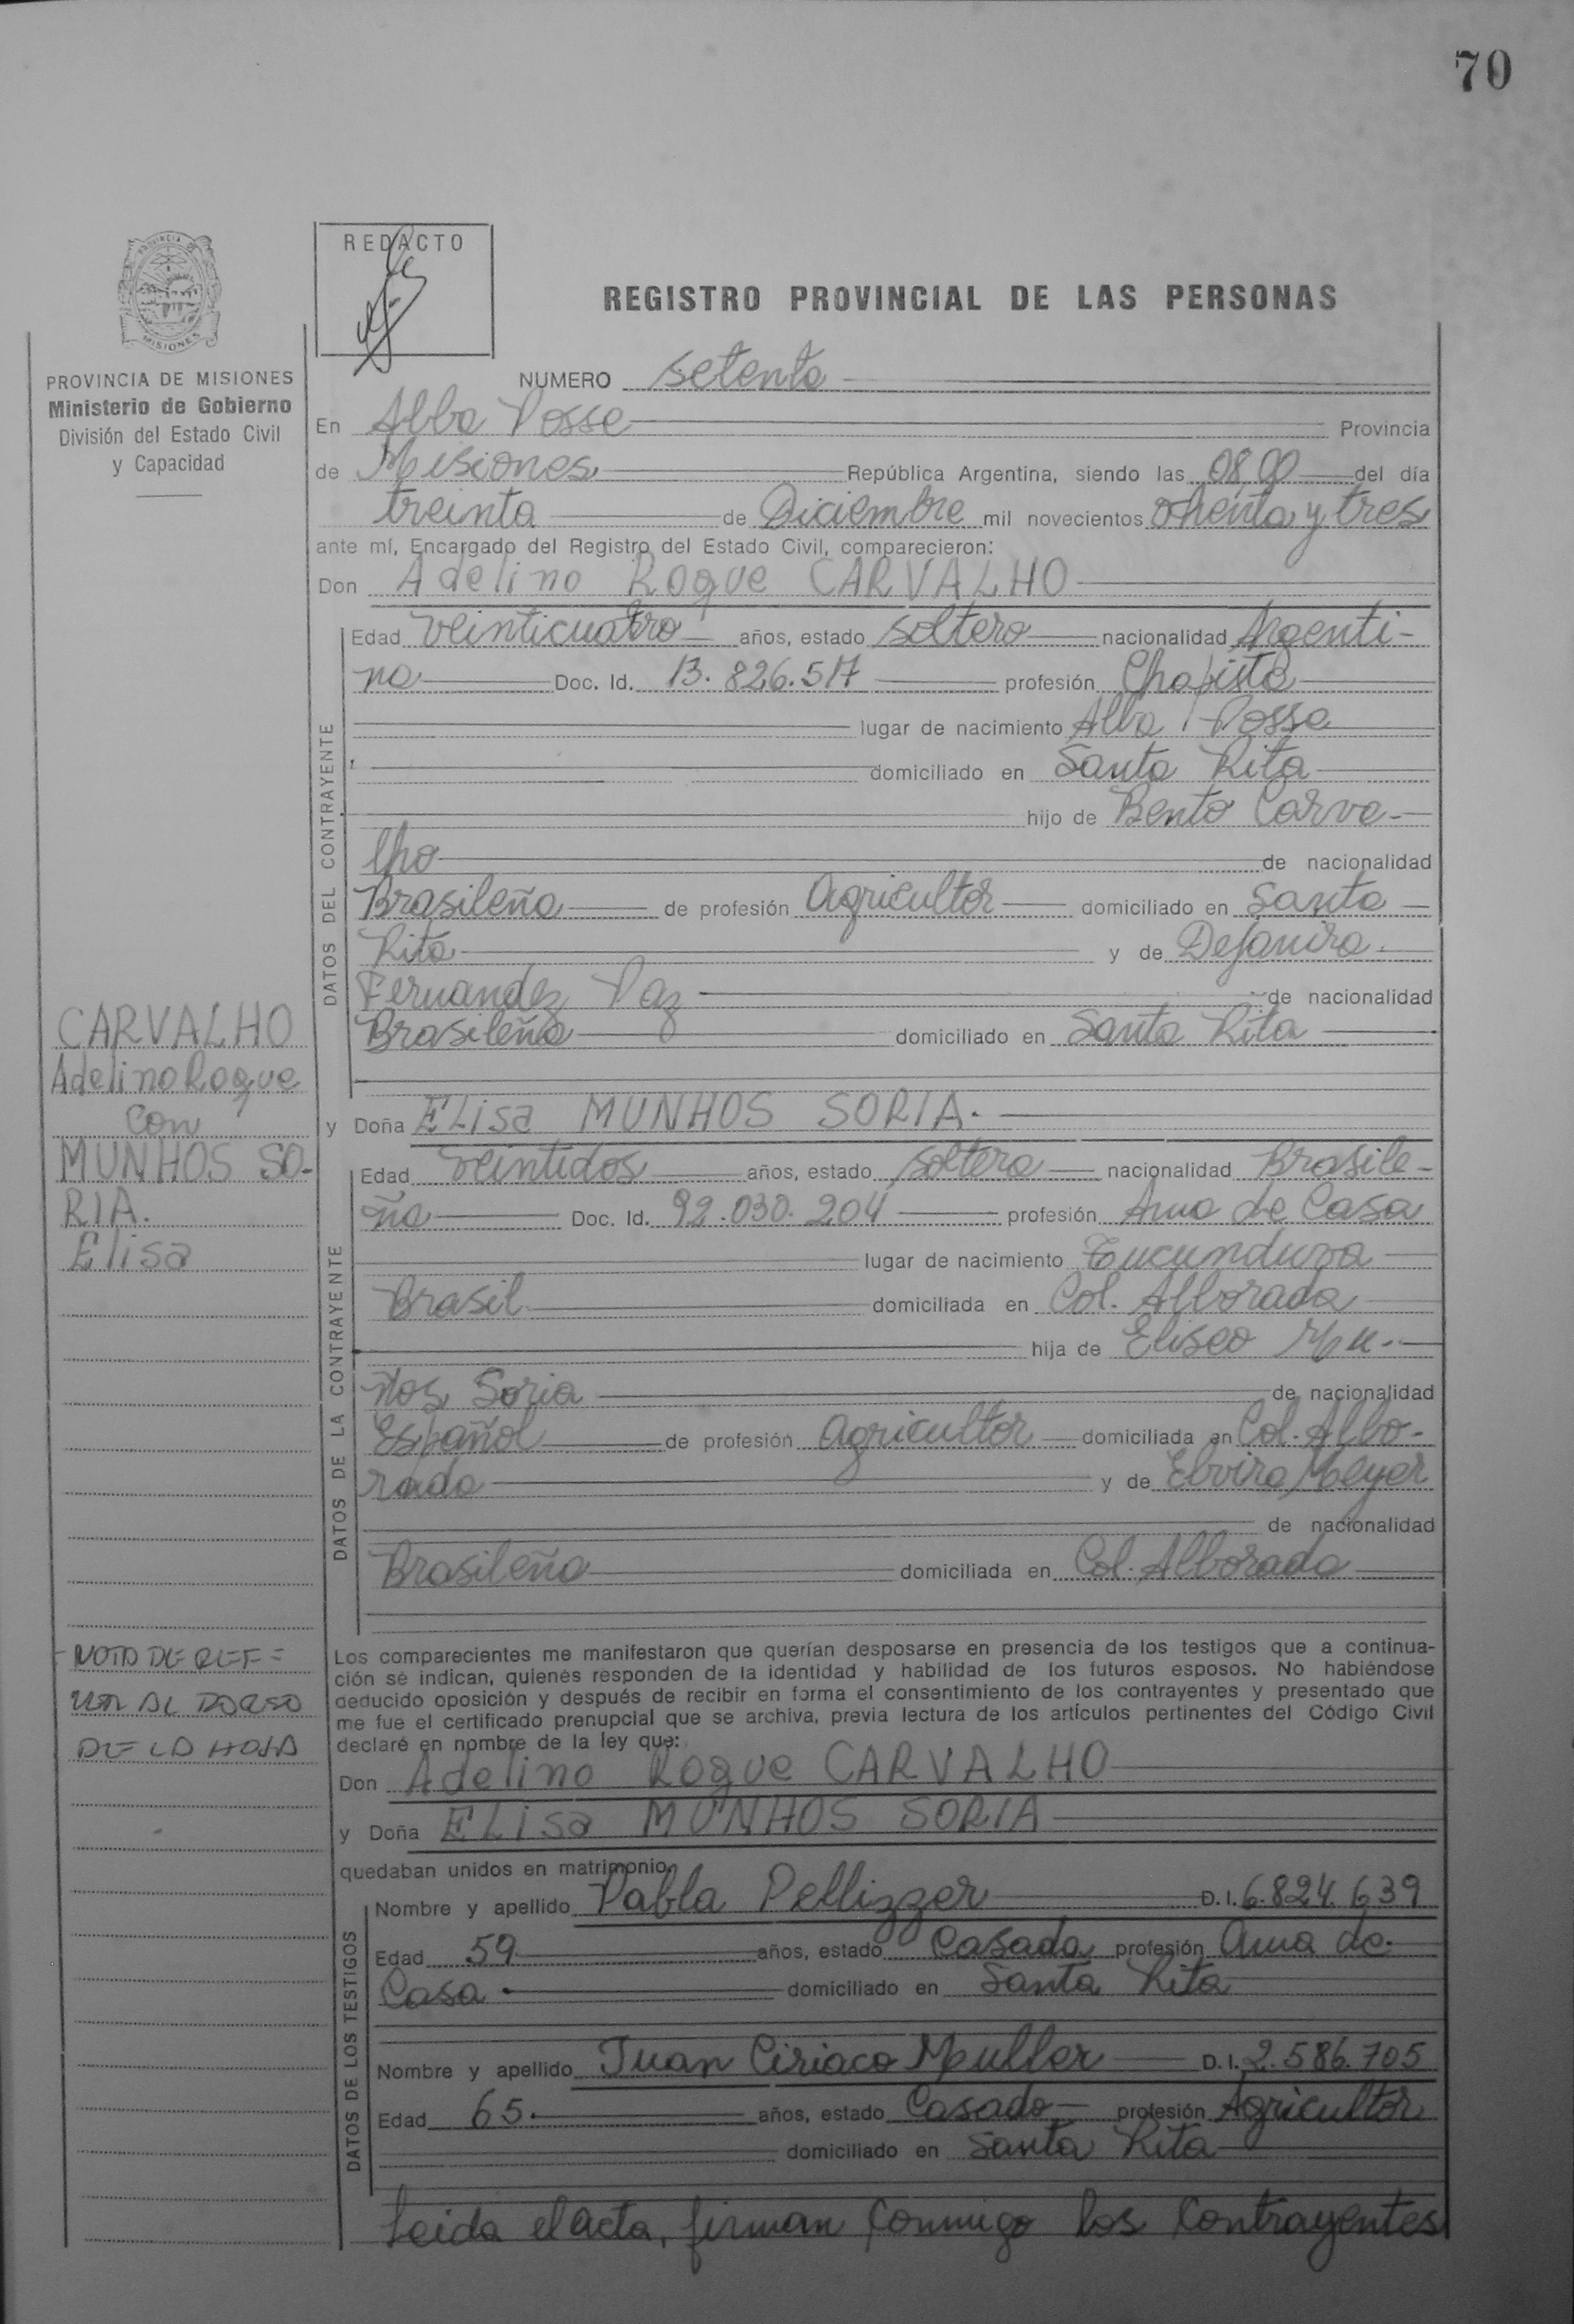 70
PROVINCIA DE
MISIONES
REDACTO
REGISTRO PROVINCIAL DE LAS PERSONAS
PROVINCIA DE MISIONES
Ministerio de Gobierno
División del Estado Civil
y Capacidad
NUMERO setenta
En Alba Posse Provincia
de Misiones República Argentina, siendo las 08,00 del día
treinta de Diciembre mil novecientos ochenta y tres
ante mí, Encargado del Registro del Estado Civil, comparecieron:
Don Adelino Roque CARVALHO
DATOS DEL CONTRAYENTE
Edad veinticuatro años, estado soltero nacionalidad Argenti-
na Doc. Id. 13.826.517 profesión Chapista
lugar de nacimiento Alba Posse
domiciliado en Santa Rita
hijo de Bento Carva-
lho de nacionalidad
Brasileña de profesión Agricultor domiciliado en Santa
Rita y de Dejanira
Fernandez Paz de nacionalidad
Brasileña domiciliado en Santa Rita
CARVALHO
Adelino Roque
con
MUNHOS SO-
RIA.
Elisa
y Doña ELisa MUNHOS SORIA.
DATOS DE LA CONTRAYENTE
Edad veintidos años, estado soltera nacionalidad Brasile-
ña Doc. Id. 92.030.204 profesión Ama de Casa
lugar de nacimiento Tucunduva
Brasil domiciliada en Col. Alborada
hija de Eliseo Mu-
ños Soria de nacionalidad
Español de profesión Agricultor domiciliada en Col. Albo-
rada y de Elvira Meyer
de nacionalidad
Brasileña domiciliada en Col. Alborada
NOTA DE REFE=
REN AL DORSO
DE LA HOJA
Los comparecientes me manifestaron que querían desposarse en presencia de los testigos que a continua-
ción se indican, quienes responden de la identidad y habilidad de los futuros esposos. No habiéndose
deducido oposición y después de recibir en forma el consentimiento de los contrayentes y presentado que
me fue el certificado prenupcial que se archiva, previa lectura de los artículos pertinentes del Código Civil
declaré en nombre de la ley que:
Don Adelino Roque CARVALHO
y Doña ELisa MUNHOS SORIA
quedaban unidos en matrimonio.
DATOS DE LOS TESTIGOS
Nombre y apellido Pabla Pellizzer D. I. 6.824.639
Edad 59 años, estado Casada profesión Ama de
Casa domiciliado en Santa Rita
Nombre y apellido Juan Ciriaco Muller D. I. 2.586.705
Edad 65 años, estado Casado profesión Agricultor
domiciliado en Santa Rita
Leida el acta, firman conmigo los Contrayentes